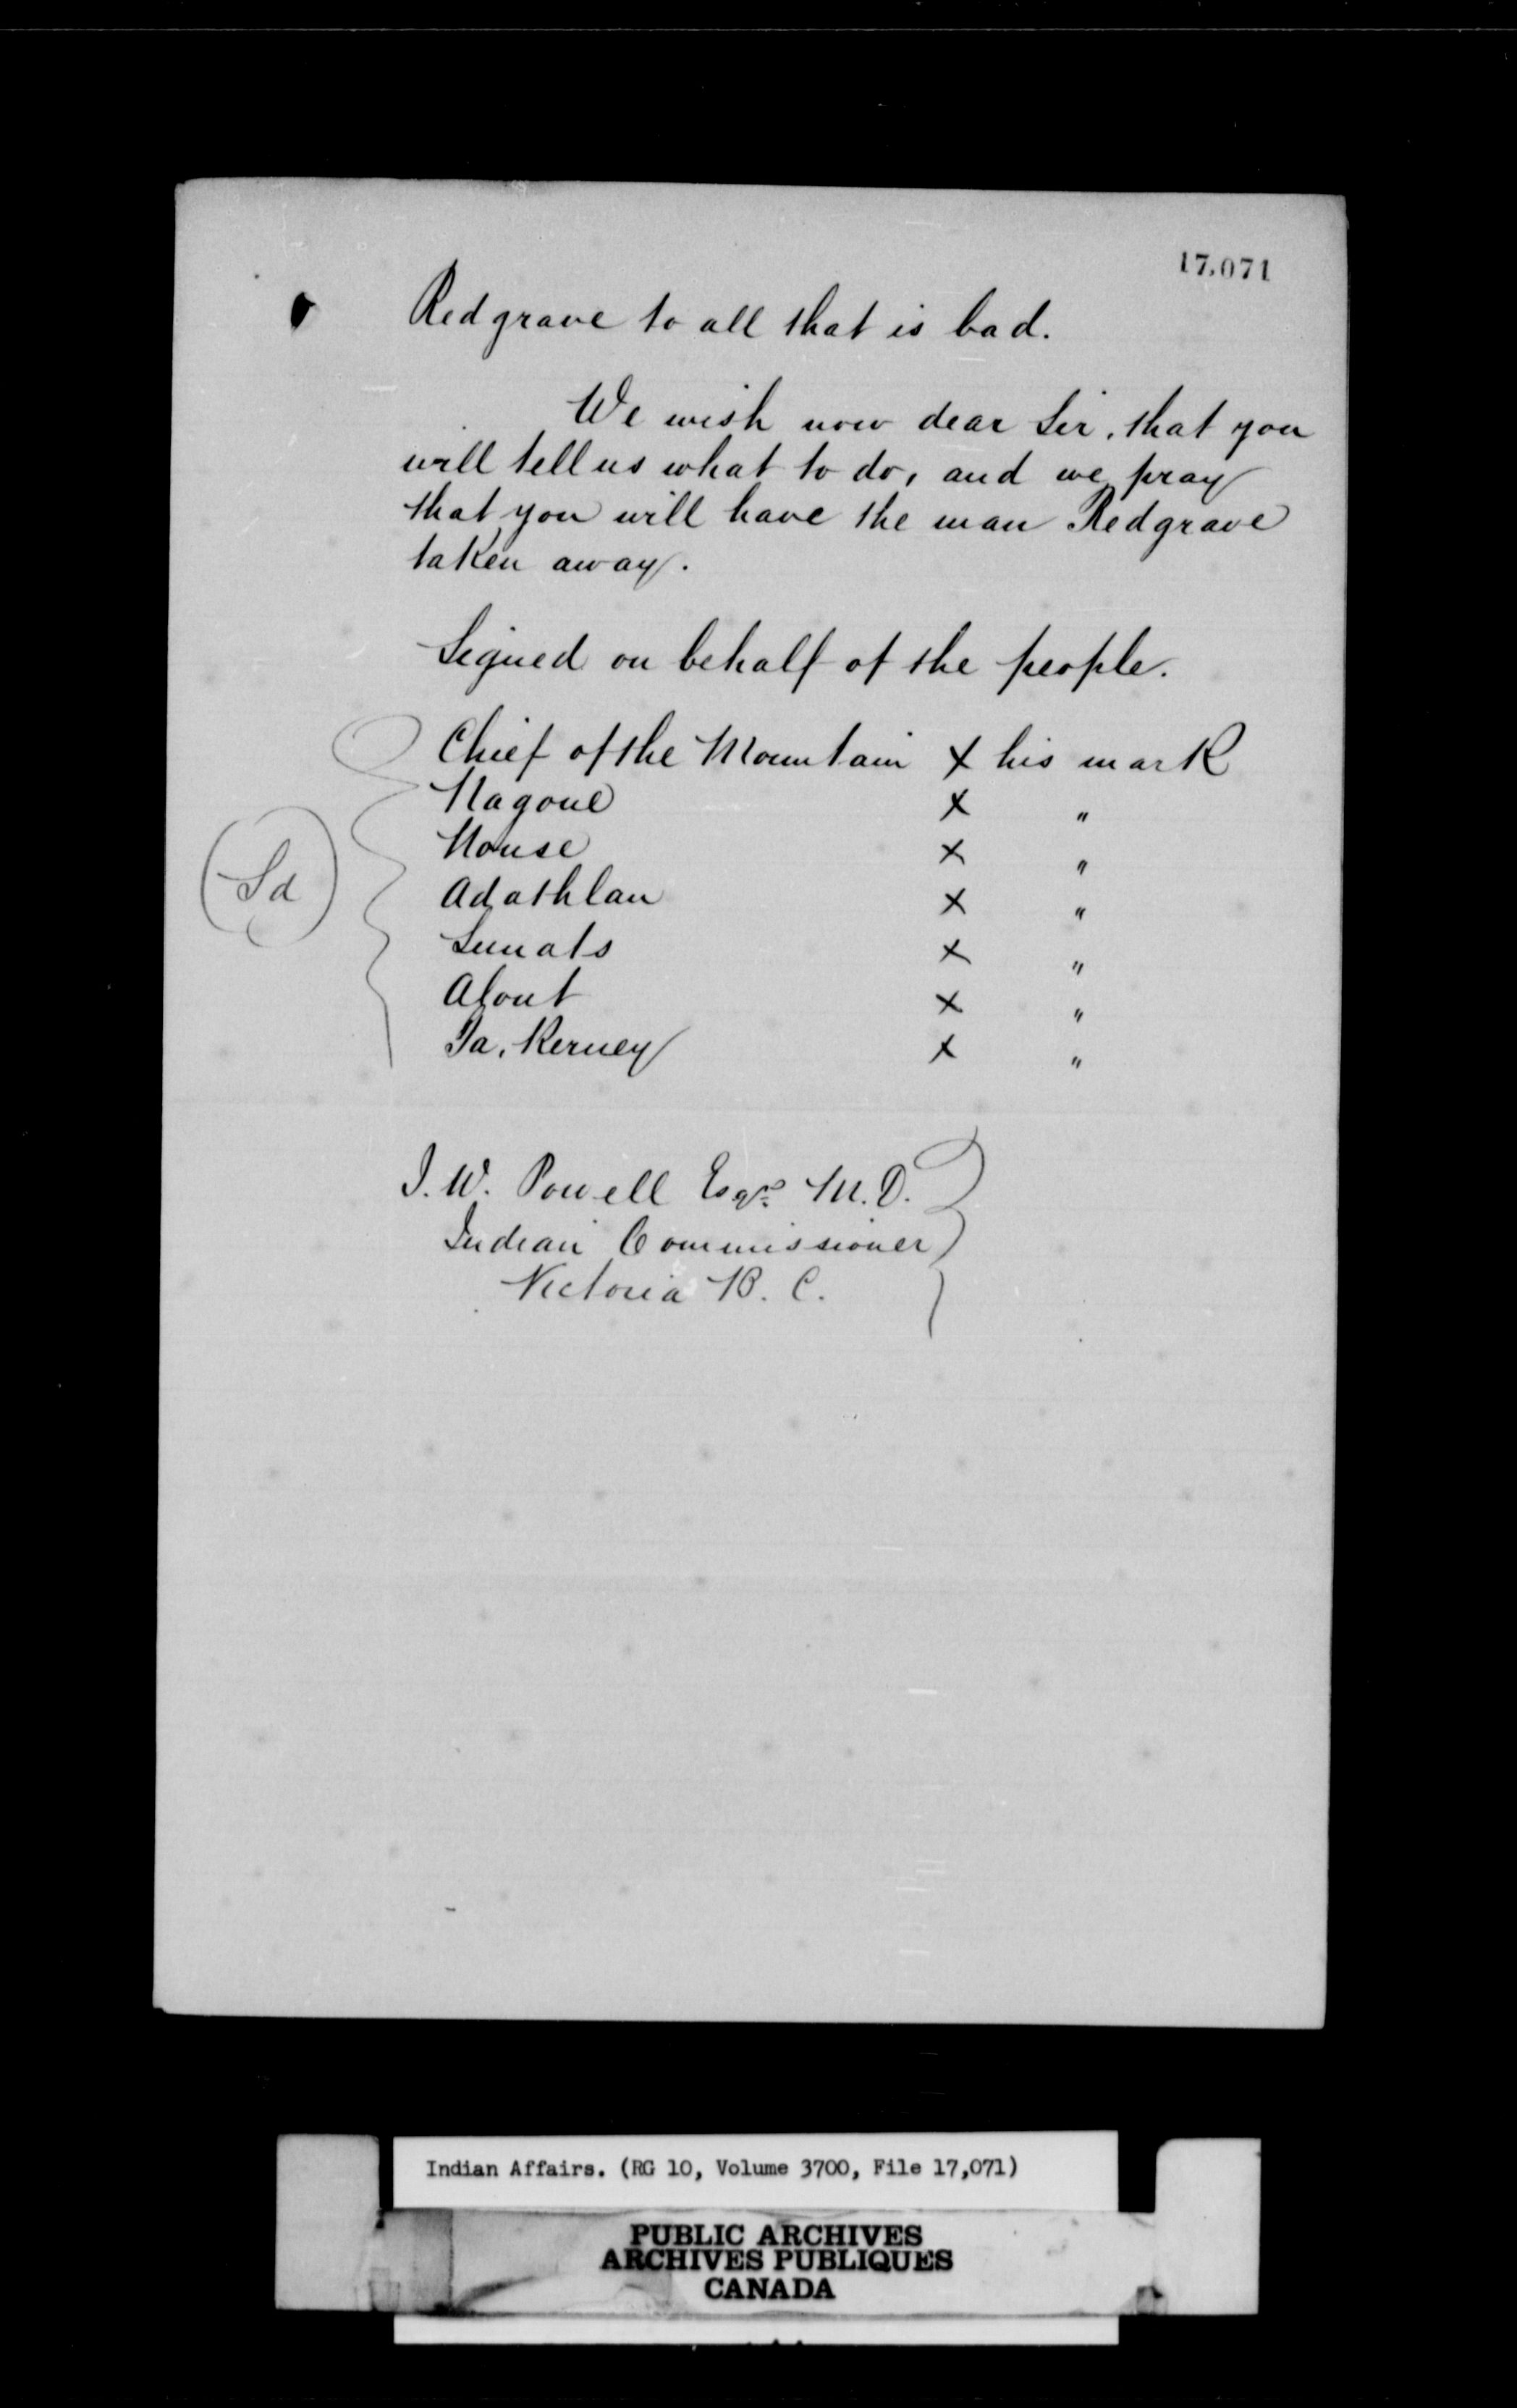 17,071
Redgrave to all that is bad.
We wish now dear Sir, that you
will tell us what to do, and we pray
that you will have the man Redgrave
taken away.
Signed on behalf of the people.
Chief of the Mountain X his mark
Nagoue X "
Nouse X "
(Sd) Adathlan X "
Sunats X "
Alout X "
Ja. Kerney X "
I. W. Powell Esqre M.D.
Indian Commissioner
Victoria B. C.
Indian Affairs. (RG 10, Volume 3700, File 17,071)
PUBLIC ARCHIVES
ARCHIVES PUBLIQUES
CANADA